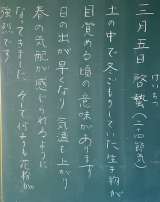 三月五日 啓蟄(二十四節気)
けいちつ
土の中で冬ごもりしていた生き物が
目覚める頃の意味があります
日の出が早くなり 気温も上がり
春の気配が感じられるように
なってきました。そして何より花粉が
強烈です!